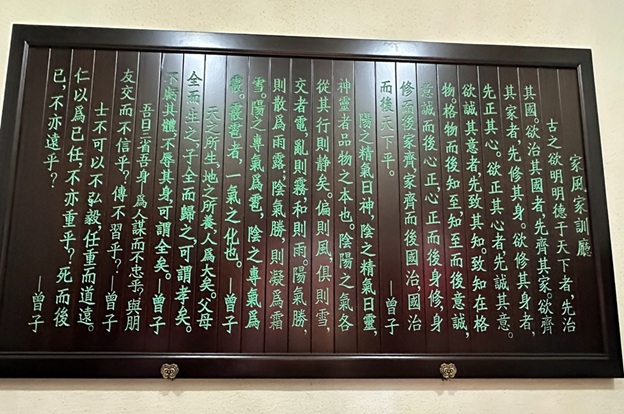 家風家訓廳
古之欲明明德于天下者,先治
其國。欲治其國者,先齊其家。欲齊
其家者,先修其身。欲修其身者,
先正其心。欲正其心者,先誠其意。
欲誠其意者,先致其知。致知在格
物。格物而後知至,知至而後意誠,
意誠而後心正,心正而後身修,身
修而後家齊,家齊而後國治,國治
而後天下平。 —曾子
陽之精氣曰神,陰之精氣曰靈,
神靈者品物之本也。陰陽之氣各
從其行則靜矣。偏則風,俱則雪,
交者電,亂則霧,和則雨。陽氣勝,
則散爲雨露,陰氣勝,則凝爲霜
雪。陽之專氣爲雹,陰之專氣爲
霰。霰雹者,一氣之化也。 —曾子
天之所生,地之所養,人爲大矣。父母
全而生之,子全而歸之,可謂孝矣。
不虧其體不辱其身,可謂全矣。 —曾子
吾日三省吾身—爲人謀而不忠乎?與朋
友交而不信乎?傳不習乎? —曾子
士不可以不弘毅,任重而道遠。
仁以爲已任,不亦重乎?死而後
已,不亦遠乎? —曾子